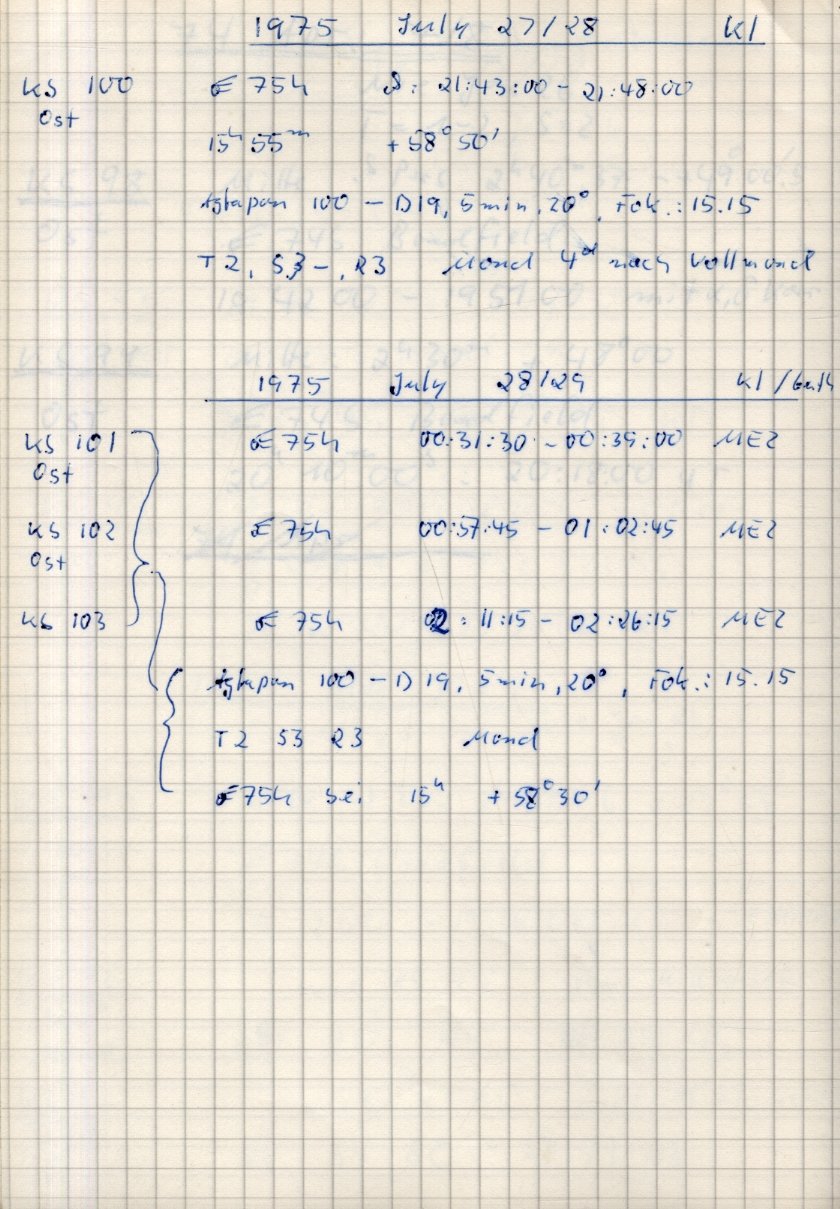 1975 July 27/28 Kl
KS 100 ☄ 75h B: 21:43:00 - 21:48:00
Ost
15ʰ 55ᵐ +58° 50'
Agfapan 100 - D19, 5min, 20°, Fok.: 15.15
T2, S3-, R3 Mond 4ᵈ nach Vollmond
1975 July 28/29 Kl /
KS 101 ☄ 75h 00:31:30 - 00:39:00 MEZ
Ost
KS 102 ☄ 75h 00:57:45 - 01:02:45 MEZ
Ost
KS 103 ☄ 75h 02:11:15 - 02:26:15 MEZ
Agfapan 100 - D19, 5min, 20°, Fok.: 15.15
T2 S3 R3 Mond
☄ 75h bei 15ʰ +58° 30'